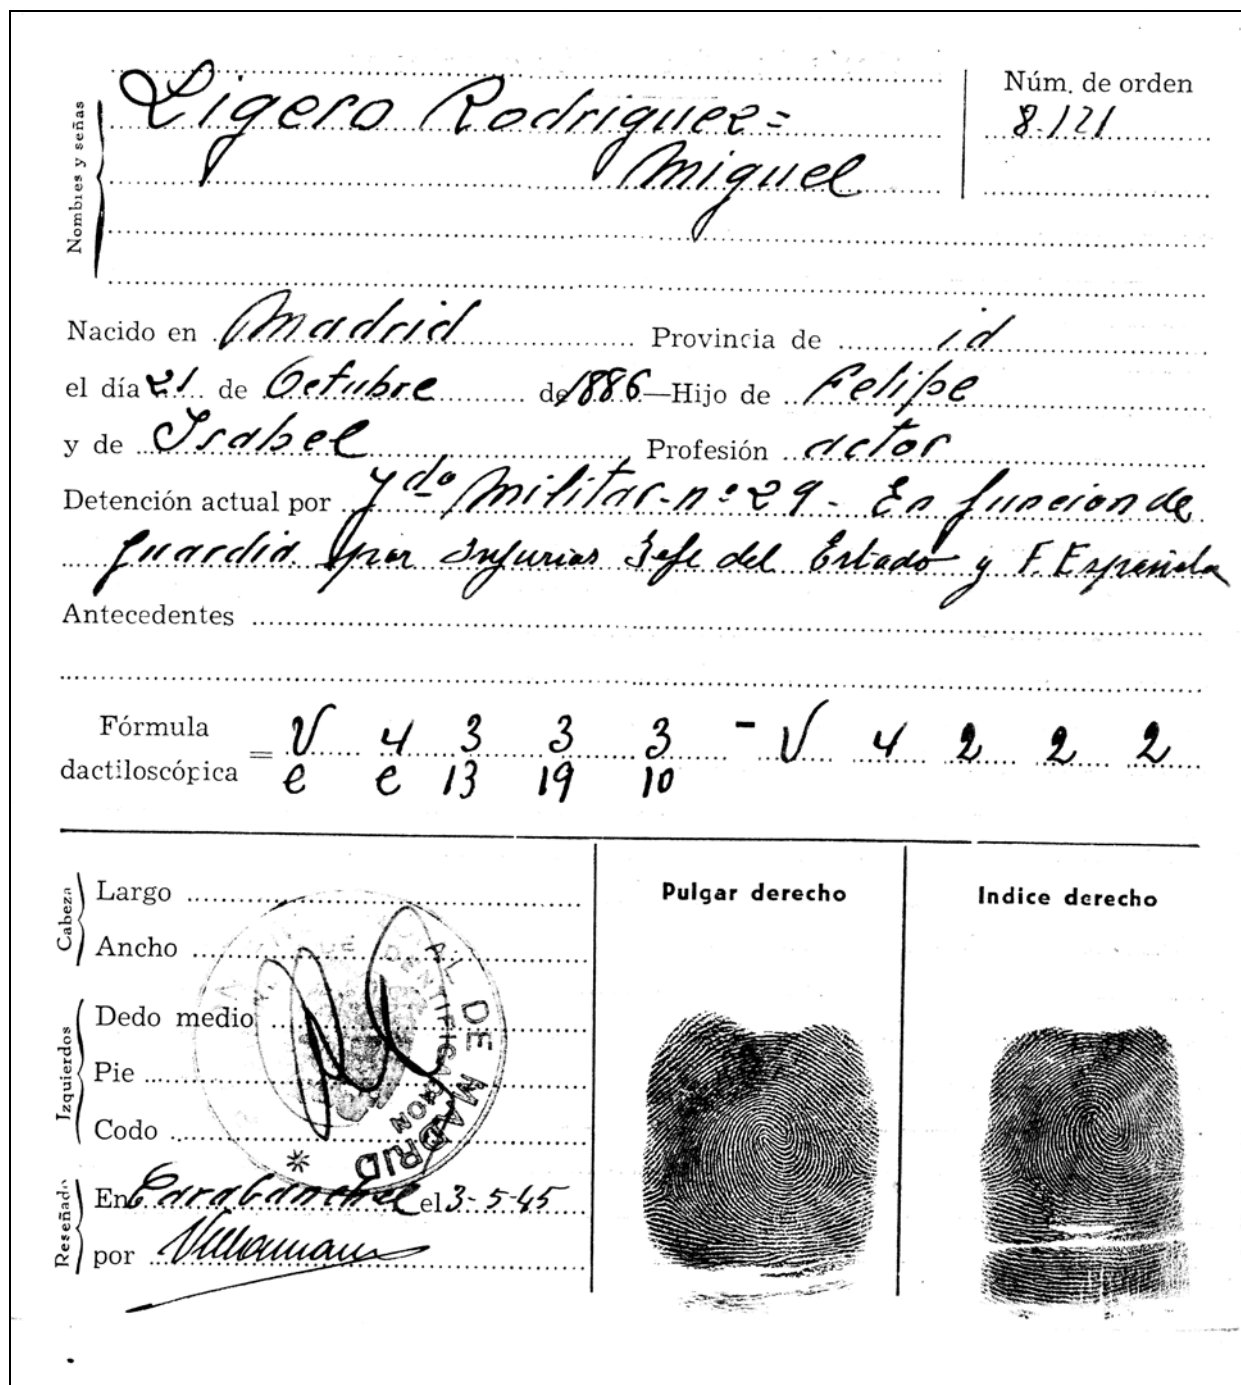 Ligero Rodriguez=
Miguel
Nombres y señas
Núm. de orden
8.121
Nacido en Madrid Provincia de id
el día 21 de Octubre de 1886—Hijo de Felipe
y de Isabel Profesión actor
Detención actual por Jdo Militar-nº 29- En funcion de
guardia. por Injurias Jefe del Estado y F. Española
Antecedentes
Fórmula dactiloscópica = V 4 3 3 3 - V 4 2 2 2
e e 13 19 10
Cabeza
Largo
Ancho
Izquierdos
Dedo medio
Pie
Codo
Reseñado
En Carabanchel el 3-5-45
por
Pulgar derecho
Indice derecho
AL DE MADRID *
DENTIFICACION